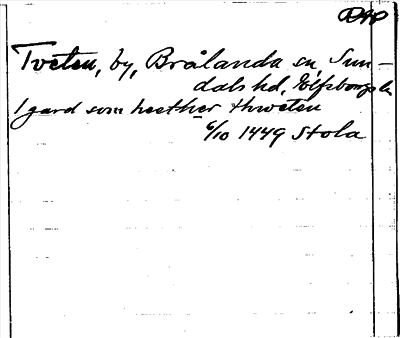 Tveten, by, Brålanda sn, Sun-
dals hd, Älfsborgs l.
1 gard som heether thweten
6/10 1449 Stola